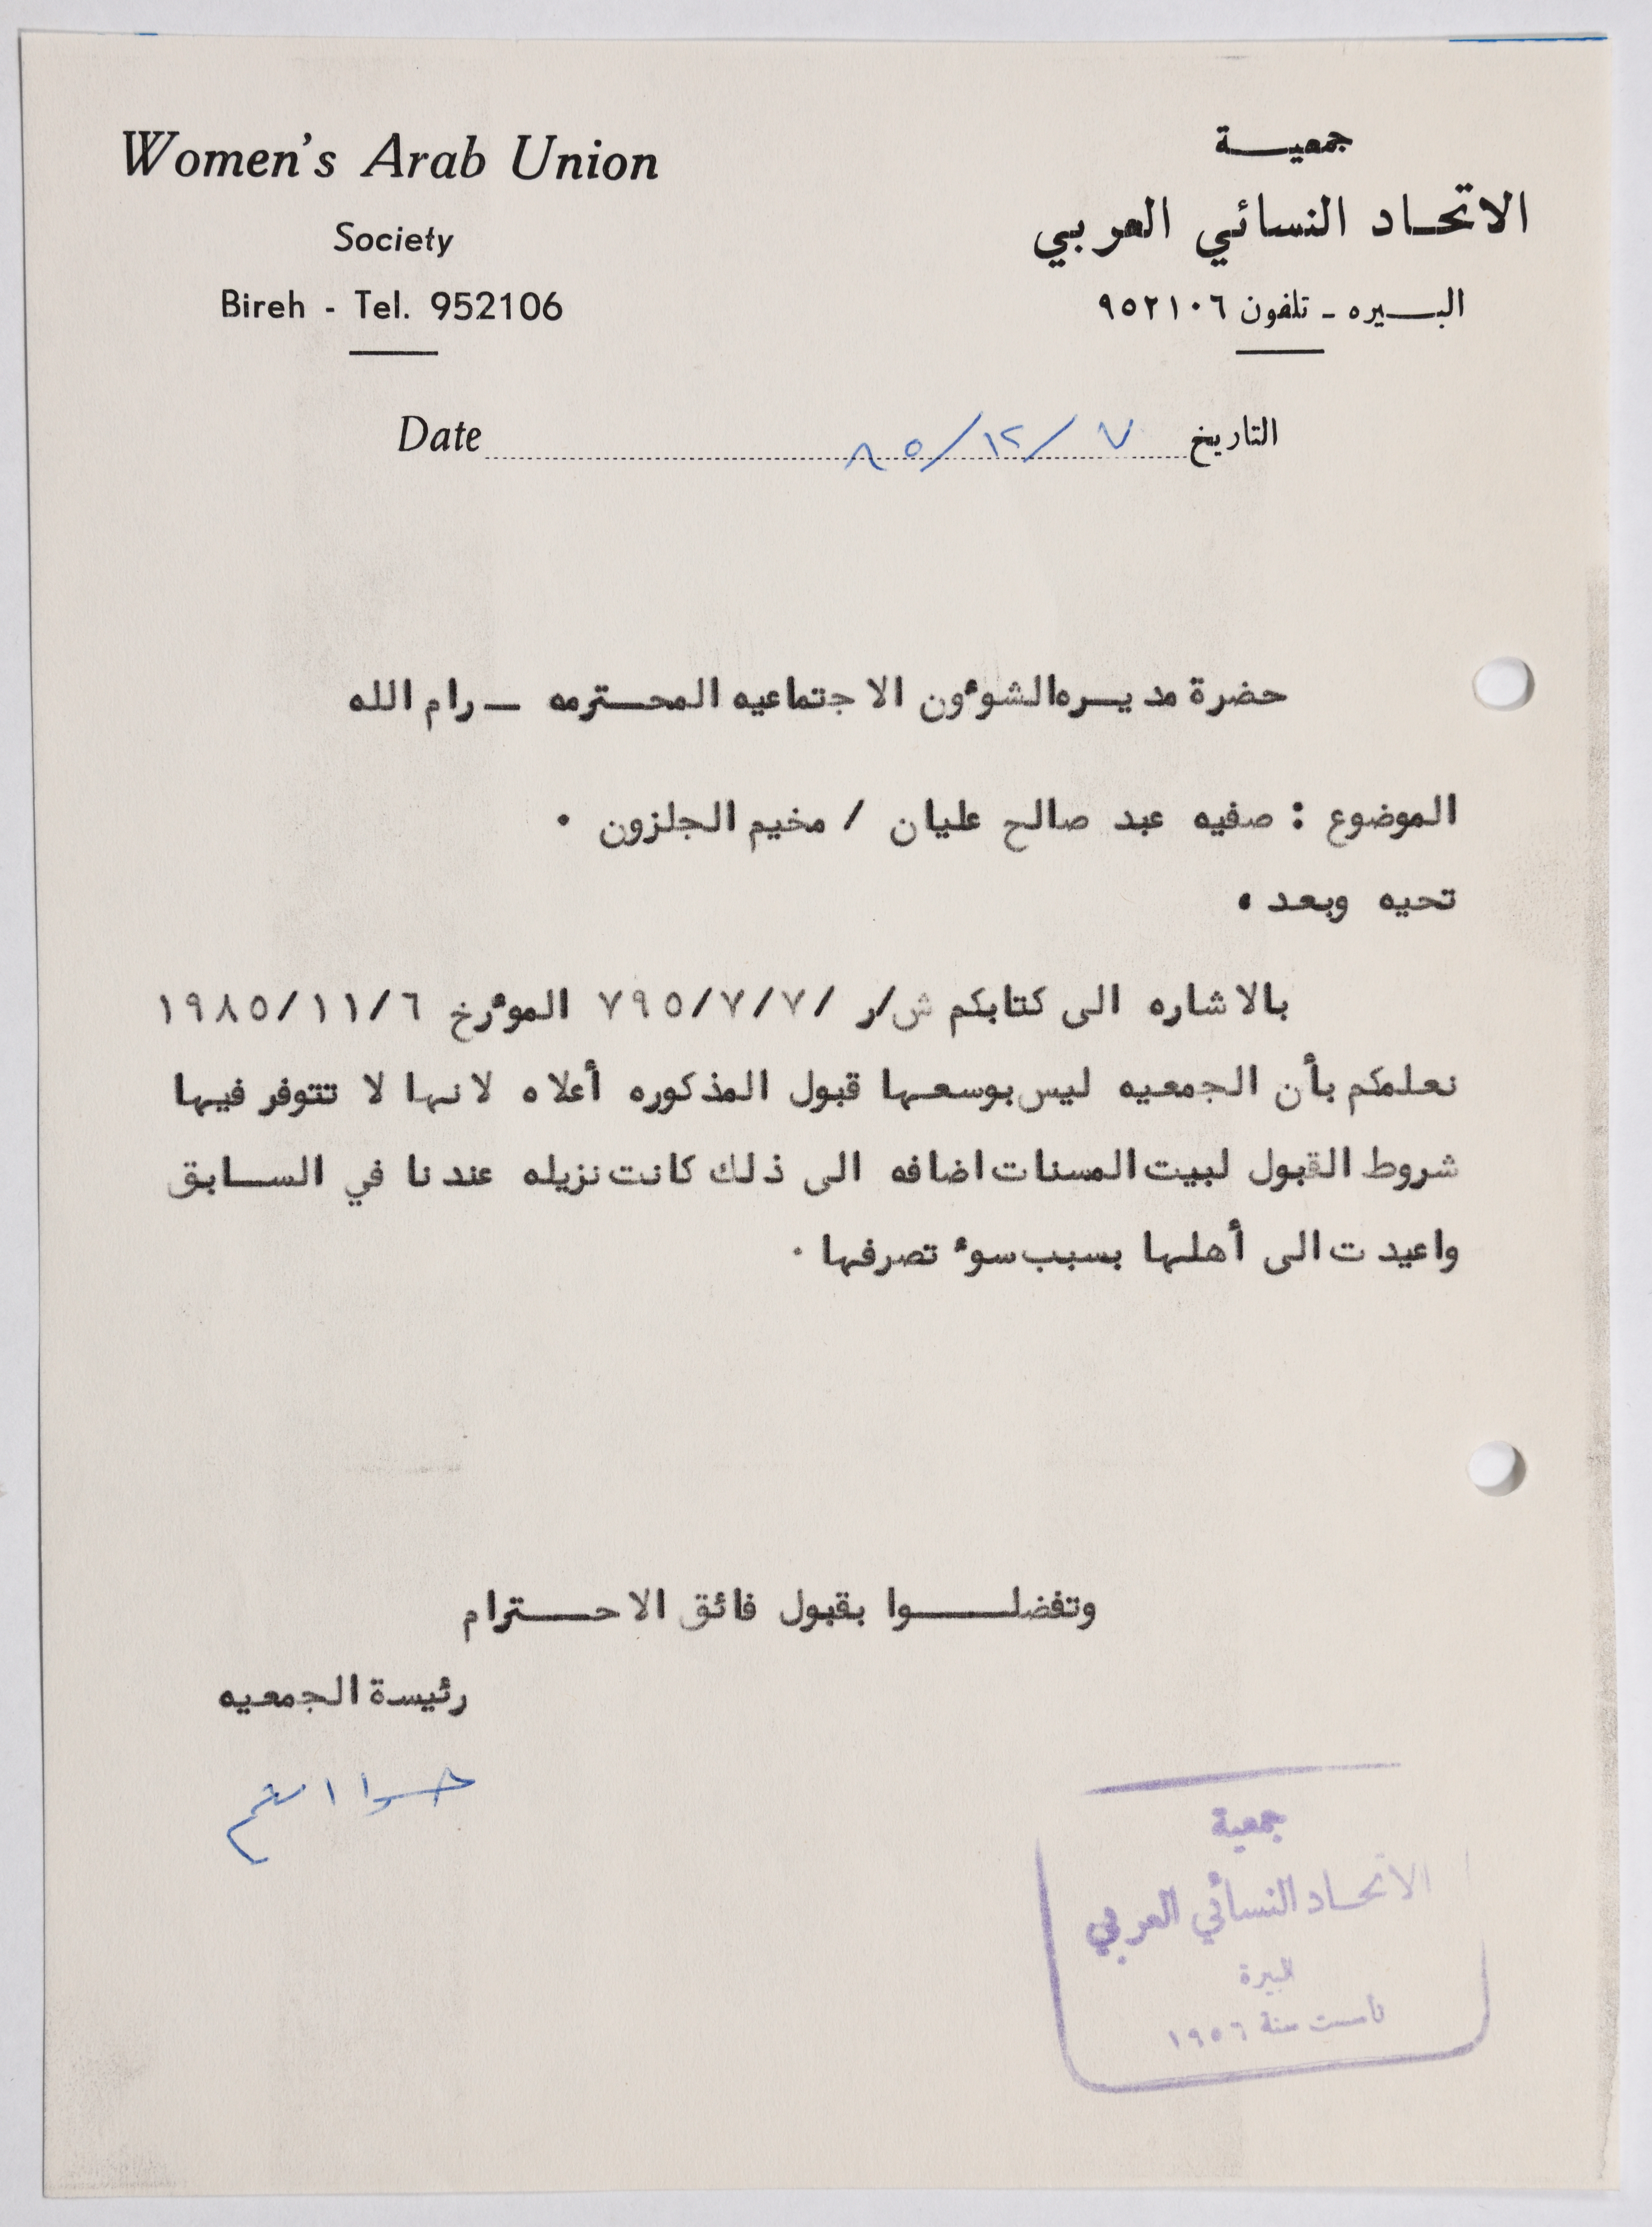 Women's Arab Union
Society
Bireh - Tel. 952106
جمعيـــة
الاتحـاد النسائي العربي
البـــيره ـ تلفون ٩٥٢١٠٦
Date ٧/١٢/٨٥ التاريخ
حضرة مديـــره الشوءون الاجتماعيه المحـــترمه ــ رام الله
الموضوع : صفيه عبد صالح عليان / مخيم الجلزون ٠
تحيه وبعد ٠
بالاشاره الى كتابكم ش/ر /٧/٧/٧٩٥ الموءرخ ١٩٨٥/١١/٦
نعلمكم بأن الجمعيه ليس بوسعها قبول المذكوره أعلاه لانها لا تتوفر فيها
شروط القبول لبيت المسنات اضافه الى ذلك كانت نزيله عندنا في الســـابق
واعيدت الى أهلها بسبب سوء تصرفها ٠
وتفضلـــــوا بقبول فائق الاحـــــترام
رئيسة الجمعيه
جمعية
الاتحـاد النسائي العربي
البيرة
تأسست سنة ١٩٥٦